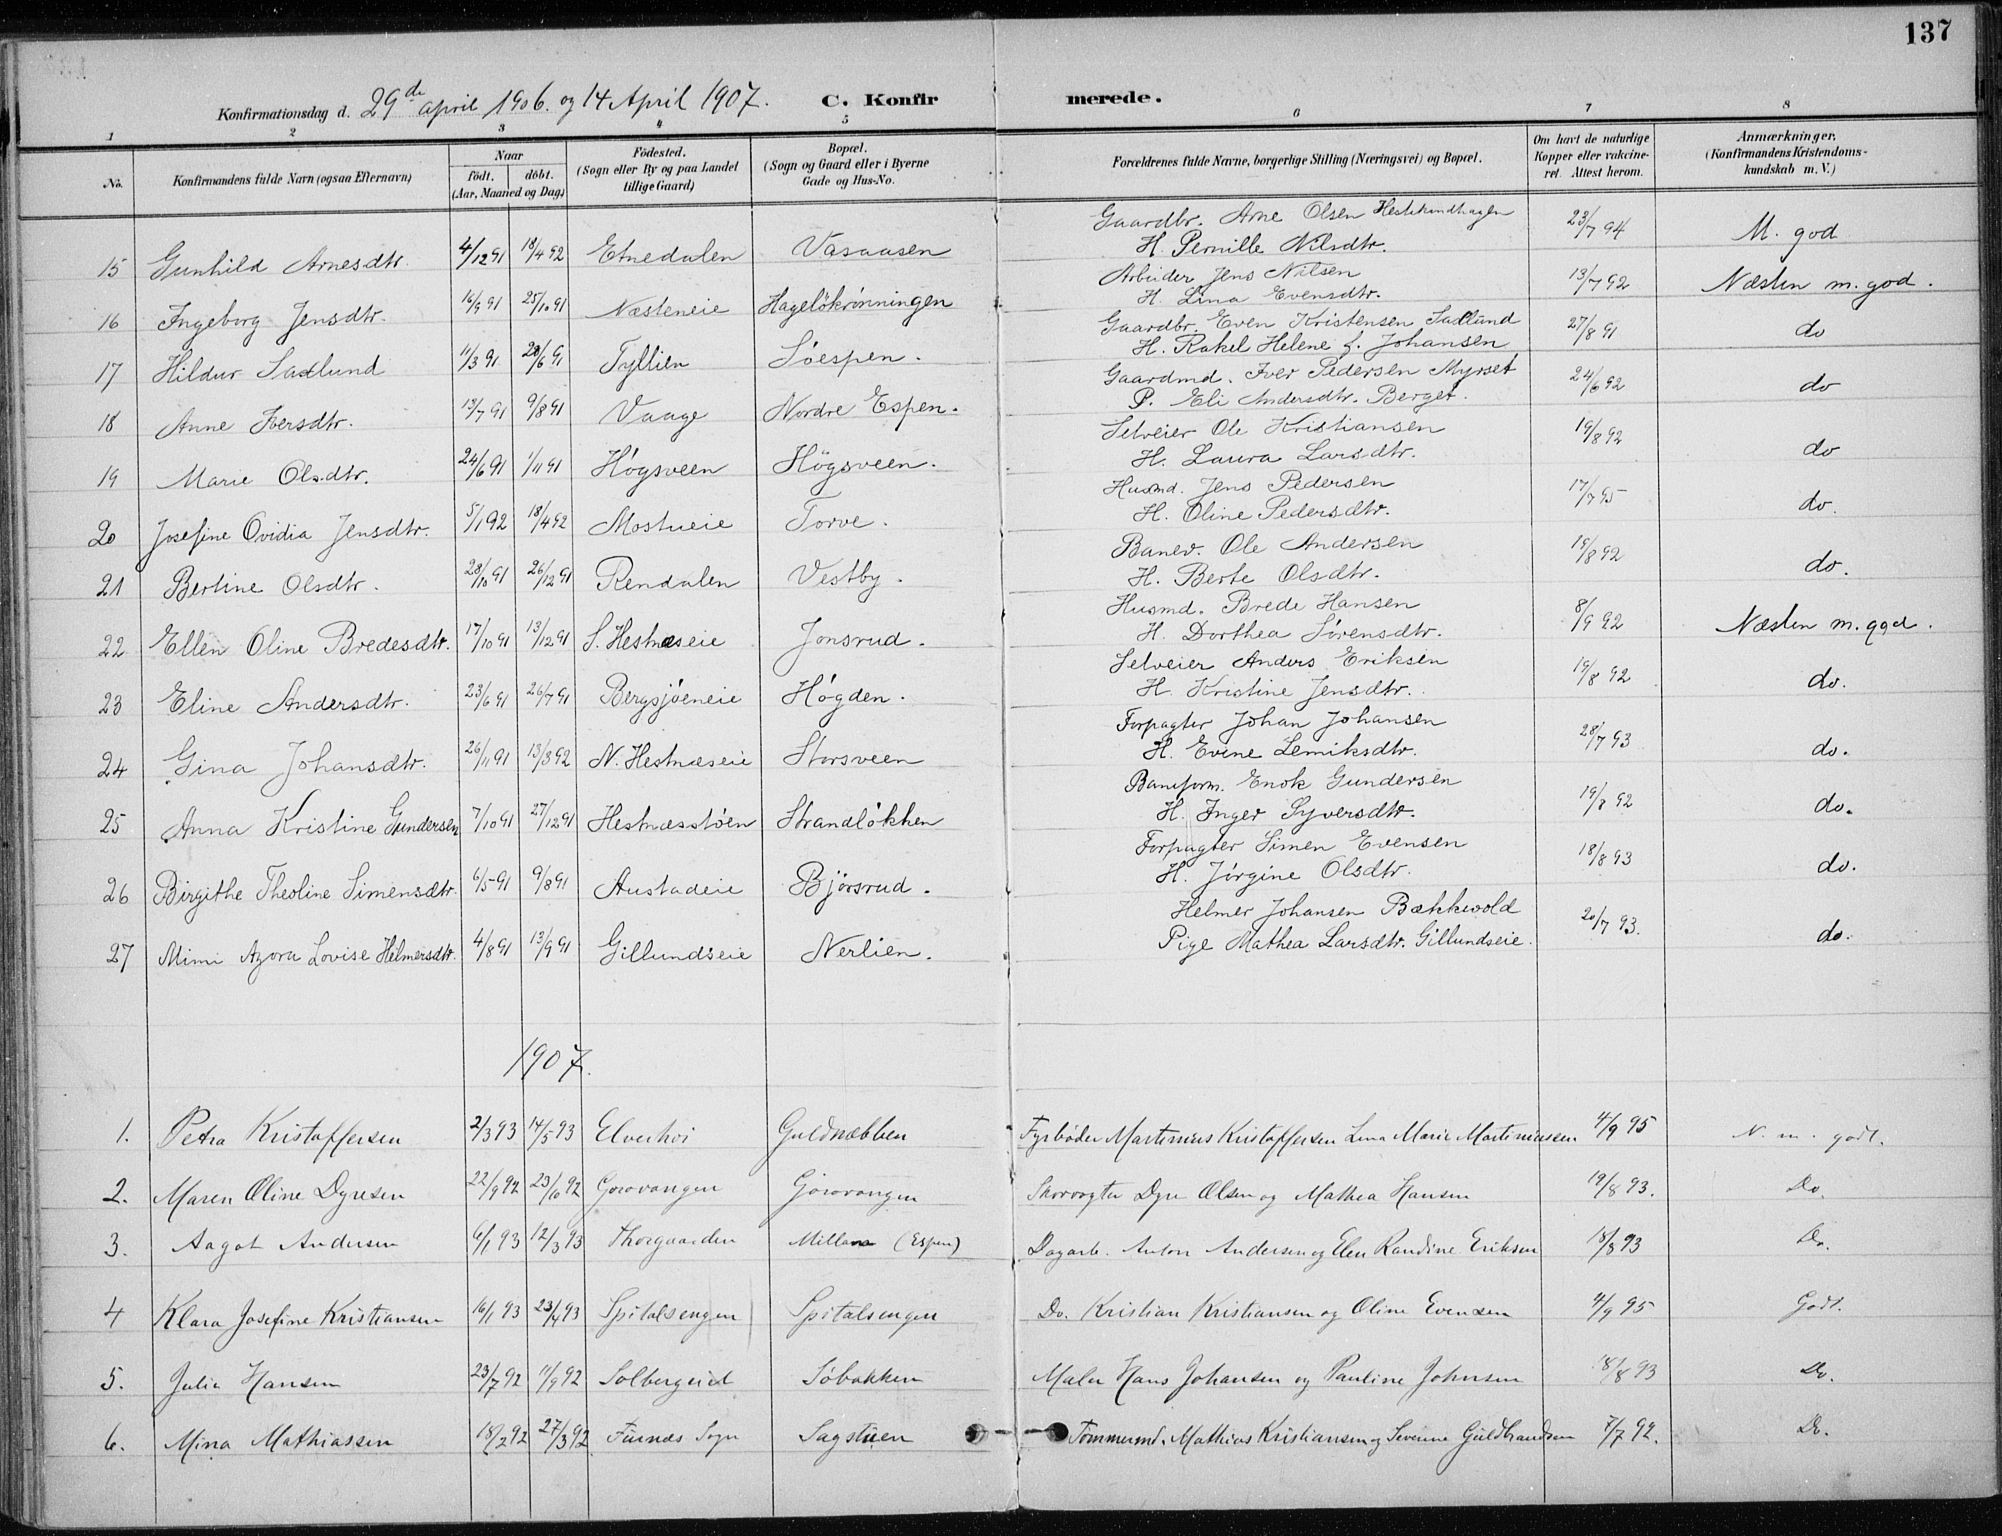 137
Konfirmationsdag d. 29de april 1906. og 14 April 1907. C. Konfirmerede.
1 2 3 4 5 6 7 8
No. Konfirmandens fulde Navn (ogsaa Efternavn) Naar født. døbt. (Aar, Maaned og Dag) Fødested. (Sogn eller By og paa Landet tillige Gaard) Bopæl. (Sogn og Gaard eller i Byerne Gade og Hus-No. Forældrenes fulde Navne, borgerlige Stilling (Næringsvei) og Bopæl. Om havt de naturlige Kopper eller vakcineret. Attest herom. Anmærkninger. (Konfirmandens Kristendomskundskab m. V.)
15 Gunhild Arnesdtr. 4/12 91 18/4 92 Etnedalen Vasaasen Gaardbr. Arne Olsen 23/7 94 M. god
H. Pernille Nilsdtr.
16 Ingeborg Jensdtr. 16/9 91 25/10 91 Næsteneie Hageløkrønningen Arbeider Jens Nilsen 13/7 92 Næsten m. god.
H. Lina Evensdtr.
17 Hildur Saxlund 11/3 91 28/6 91 Tyllien Søespen. Gaardbr. Even Kristensen Saxlund 27/8 91 do
H. Rakel Helene f. Johansen
18 Anne Iversdtr. 13/7 91 9/8 91 Vaage Nordre Espen. Gaardmd. Iver Pedersen Myrset 24/6 92 do
P. Eli Andersdtr. Berget.
19 Marie Olsdtr. 24/6 91 1/11 91 Høgsveen Høgsveen. Selveier Ole Kristiansen 19/8 92 do
H. Laura Larsdtr.
20 Josefine Ovidia Jensdtr. 5/1 92 18/4 92 Mostueie Torve. Husmd. Jens Pedersen 17/7 95 do.
H. Oline Pedersdtr.
21 Bertine Olsdtr. 28/10 91 26/12 91 Rendalen Vestby. Banev. Ole Andersen 19/8 92 do.
H. Berte Olsdtr.
22 Ellen Oline Bredesdtr. 17/10 91 13/12 91 S. Hestnæseie Jonsrud. Husmd. Brede Hansen 8/9 92 Næsten m. god.
H. Dorthea Sørensdtr.
23 Eline Andersdtr. 23/6 91 26/7 91 Bergsjøeneie Høgden. Selveier Anders Eriksen 19/8 92 do.
H. Kristine Jensdtr.
24 Gina Johansdtr. 26/11 91 13/3 92 N. Hestnæseie Storsveen Forpagter Johan Johansen 28/7 93 do.
H. Evine Lemiksdtr.
25 Anna Kristine Gundersen 7/10 91 27/12 91 Hestnæsstøen Strandløkken Baneform. Enok Gundersen 19/8 92 do.
H. Inger Syversdtr.
26 Birgithe Theoline Simensdtr. 6/5 91 9/8 91 Austadeie Bjørsrud. Forpagter Simen Evensen 18/8 93 do.
H. Jørgine Olsdtr.
27 Mimi Azora Lovise Helmersdtr. 4/8 91 13/9 91 Gillundseie Nerlien. Helmer Johansen Bækkevold 20/7 93. do.
Pige Mathea Larsdtr. Gillundseie.
1907.
1. Petra Kristoffersen 2/3 93 14/5 93 Elverhøi Guldnæbben Fyrbøder Martinius Kristoffersen Lina Marie Martiniussen 4/9 95 N. m. godt.
2. Maren Oline Dyresen 22/9 92 23/10 92 Gorovangen Gorovangen Skovvogter Dyre Olsen og Mathea Hansen 19/8 93. Do.
3. Aagot Andersen 6/1 93 12/3 93 Thorgaarden (Espen) Dagarb. Anton Andersen og Elen Randine Eriksen 18/8 93 Do.
4 Klara Josefine Kristiansen 16/1 93 23/4 93 Spitalsengen Spitalsengen Do. Kristian Kristiansen og Oline Evensen 4/9 95 Godt.
5. Julia Hansen 23/7 92 11/9 92 Solbergeid Søbakken Maler Hans Johansen og Pauline Johnsen 18/8 93 Do.
6. Mina Mathiassen 18/2 92 27/3 92 Furnæs Sogn Sagstuen Tømmermd. Mathias Kristiansen og Severine Guldbrandsen 7/7 92. Do.